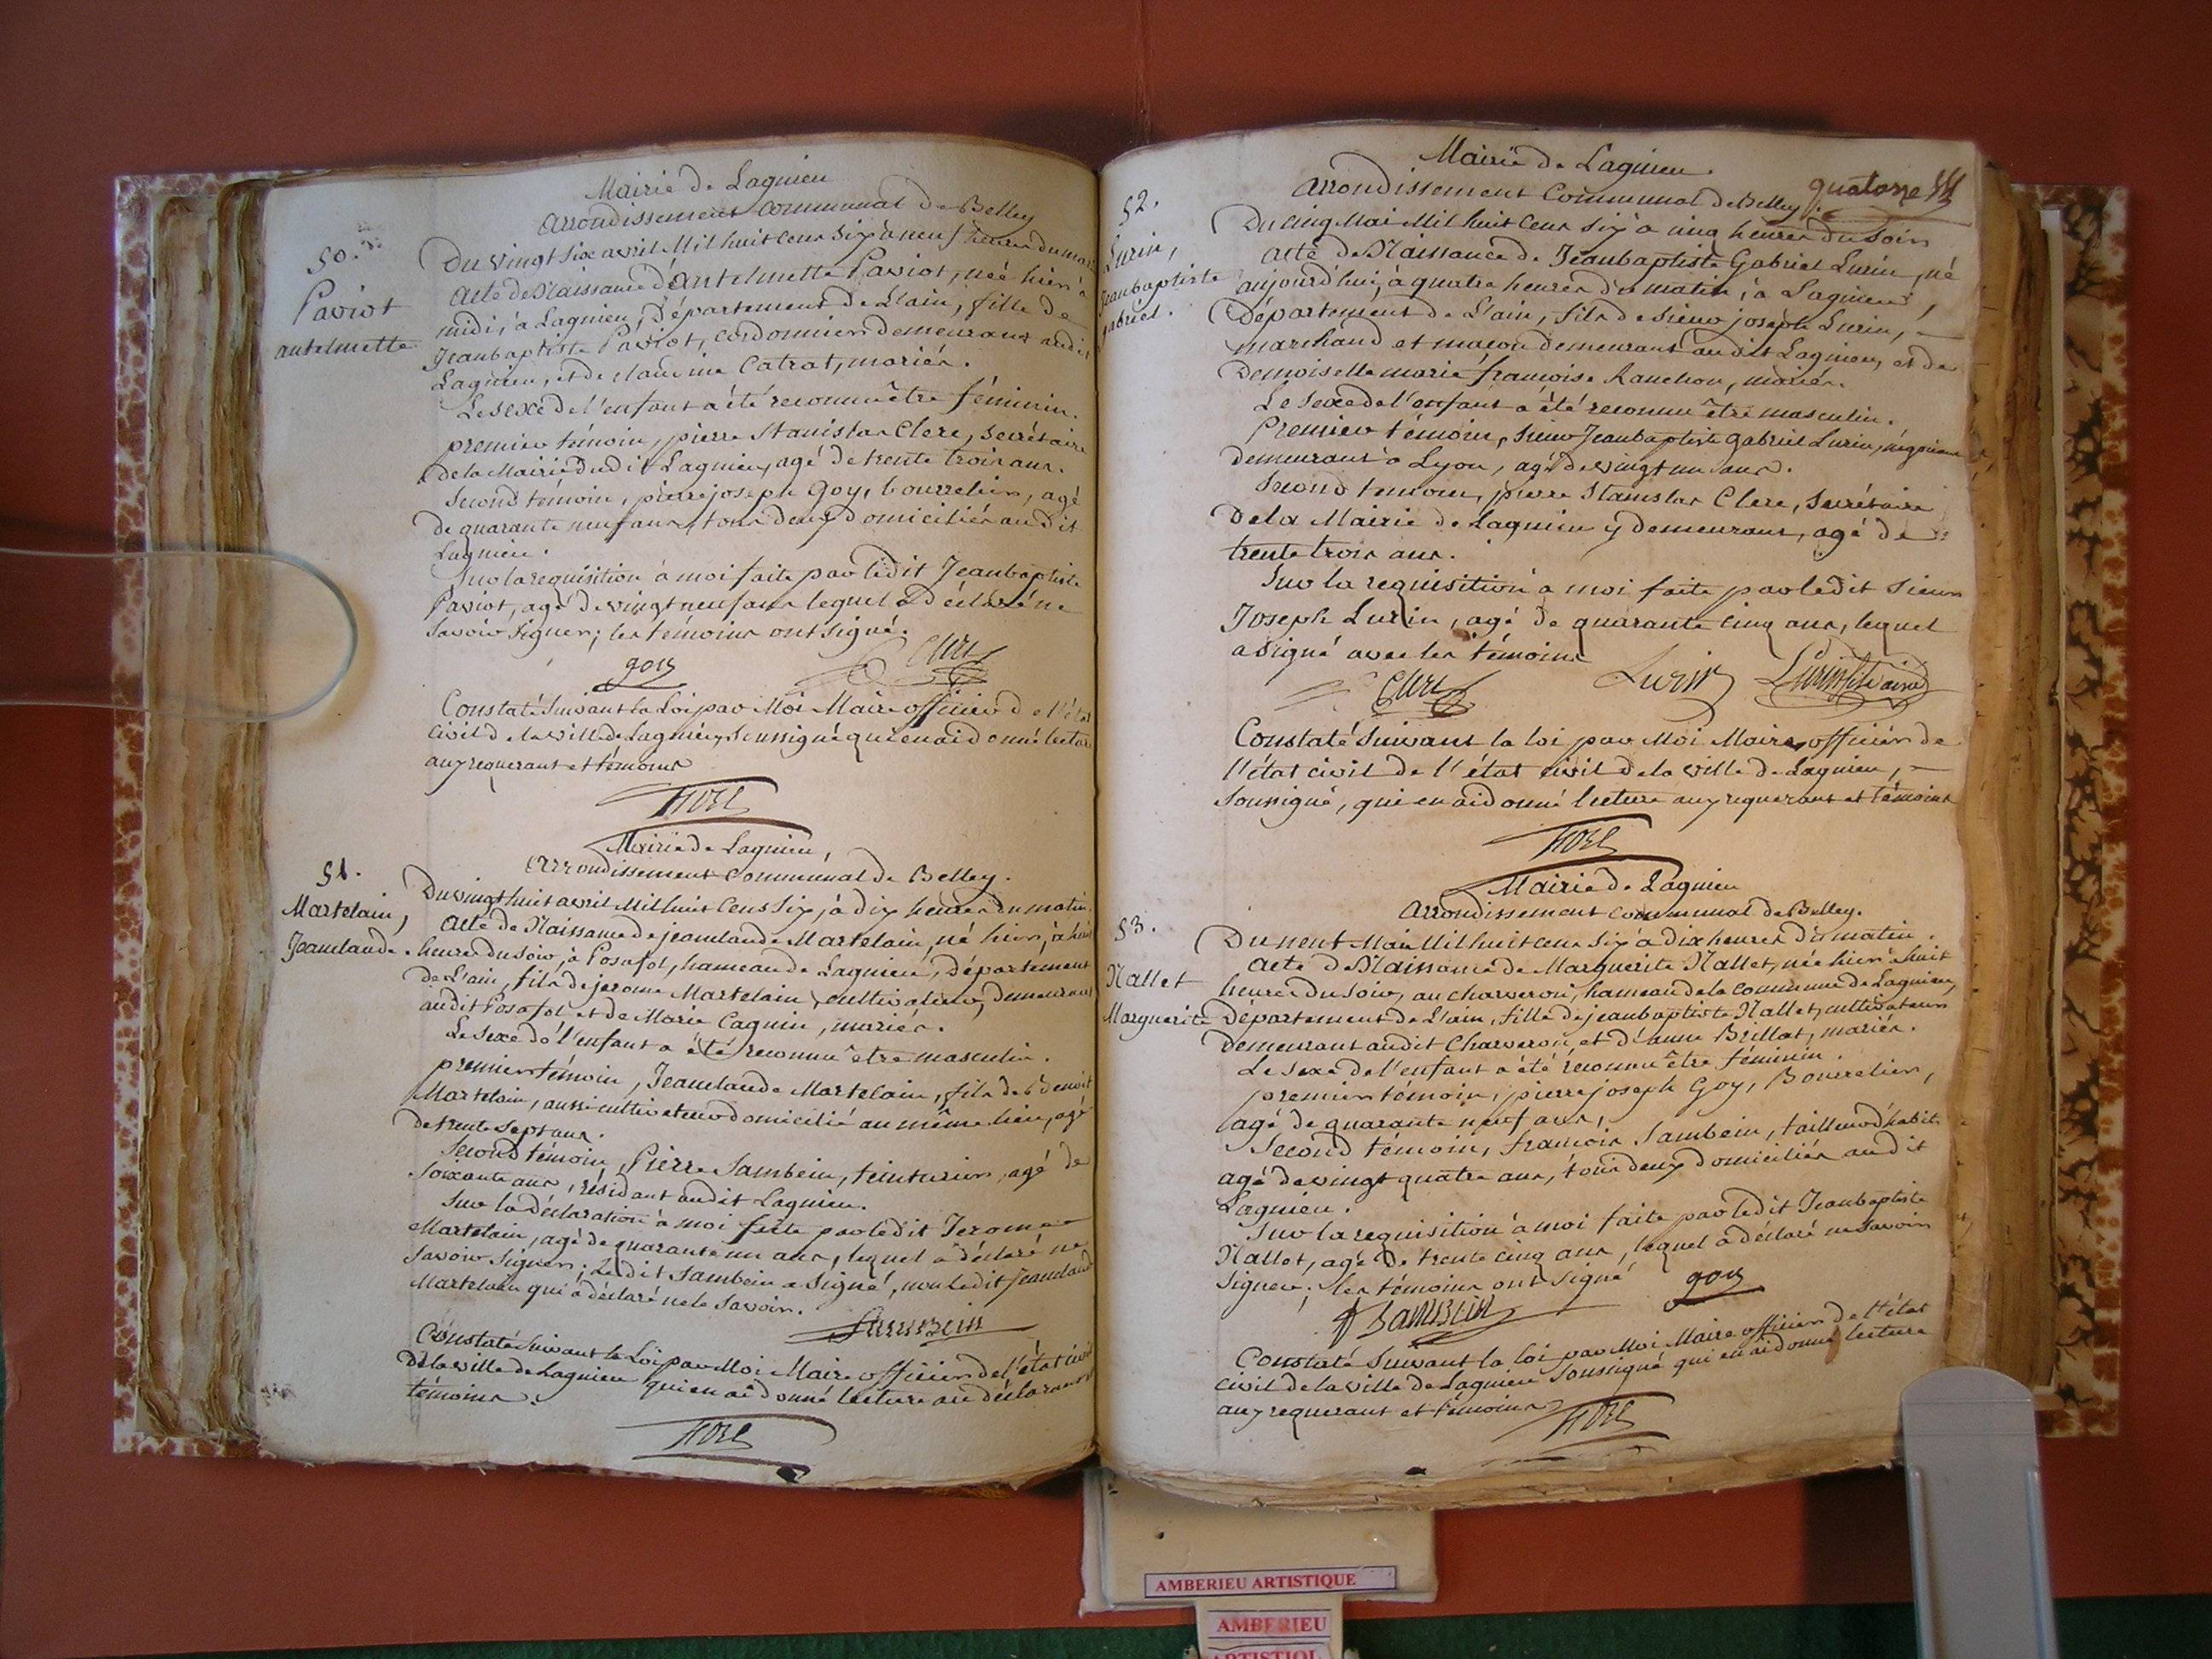 Mairie de Lagnieu
arrondissement Communal de Belley
50.
Paviot
antelmette
Du vingt six avril Mil huit cens six à neuf heures du
acte de Naissance d'antelmette Paviot, née hier à
midi, à Lagnieu, Département de L'ain, fille de
Jeanbaptiste Paviot, cordonnier demeurant audit
Lagnieu, et de Claudine Catrat, mariés.
Le sexe de l'enfant a été reconnu être féminin.
premier témoin, pierre Stanislas Clerc, secrétaire
de la Mairie dudit Lagnieu, agé de trente trois ans.
Second témoin, pierre joseph Goy, bourrelier, agé
de quarante neuf ans, tous deux domiciliés audit
Lagnieu.
Sur la requisition à moi faite par ledit Jeanbaptiste
Paviot, agé de vingt neuf ans lequel a déclaré ne
savoir signer; les témoins ont signé.
goy Clerc
Constaté suivant la Loi par Moi Maire officier de l'état
civil de la ville de Lagnieu, soussigné qui en ai donné lecture
aux requerant et témoins
Mairie de Lagnieu,
arrondissement Communal de Belley.
51.
Martelain,
Jeanclaude.
Du vingt huit avril Mil huit Cens six, à dix heures du matin.
acte de Naissance de jeanclaude Martelain, né hier, à huit
heures du soir, à Posafol, hameau de Lagnieu, Département
de L'ain, fils de jerome Martelain, cultivateur, demeurant
audit Posafol et de Marie Cagnin, mariés.
Le sexe de l'enfant a été reconnu être masculin.
premier témoin, Jeanclaude Martelain, fils de Benoit
Martelain, aussi cultivateur domicilié au même lieu, agé
de trente sept ans.
Second témoin, Pierre Sambein, teinturier, agé de
soixante ans, résidant audit Lagnieu.
Sur la déclaration à moi faite par ledit Jerome
Martelain, agé de quarante un ans, lequel a déclaré ne
savoir signer; ledit Sambein a signé, non ledit Jeanclaude
Martelain qui a déclaré ne le savoir.
SamBein
Constaté suivant la Loi par Moi Maire officier de l'état civil
de la ville de Lagnieu qui en ai donné lecture au déclarant et
témoins.
Mairie de Lagnieu.
arrondissement Communal de Belley.
quatorze
52.
Lurin,
Jeanbaptiste
gabriel.
Du cinq Mai Mil huit cens six à cinq heures du soir
acte de Naissance de Jeanbaptiste Gabriel Lurin, né
aujourd'hui, à quatre heures du matin, à Lagnieu,
Département de L'ain, fils de sieur joseph Lurin,
marchand et maçon demeurant audit Lagnieu, et de
Demoiselle marie françoise Ranchon, mariés.
Le sexe de l'enfant a été reconnu être masculin.
Premier témoin, sieur Jeanbaptiste gabriel Lurin, négociant
demeurant à Lyon, agé de vingt un ans.
Second temoin, pierre Stanislas Clerc, Secrétaire
de la Mairie de Lagnieu y demeurant, agé de
trente trois ans.
Sur la requisition à moi faite par ledit sieur
Joseph Lurin, agé de quarante cinq ans, lequel
a signé avec les témoins
Clerc Lurin Lurin fils ainé
Constaté suivant la loi par Moi Maire, officier de
l'état civil de l'état civil de la ville de Lagnieu,
soussigné, qui en ai donné lecture aux requerant et témoins
Mairie de Lagnieu
arrondissement communal de Belley.
53.
Nallet
Marguerite
Du neuf Mai Mil huit cens six à dix heures du matin.
acte de Naissance de Marguerite Nallet, née hier à huit
heures du soir, au charveron, hameau de la commune de Lagnieu,
Département de L'ain, fille de jeanbaptiste Nallet, cultivateur
demeurant audit Charveron, et d'anne Brillat, mariés.
Le sexe de l'enfant a été reconnu être féminin.
premier témoin, pierre joseph Goy, Bourrelier,
agé de quarante neuf ans,
Second témoin, françois Sambein, tailleur d'habits
agé de vingt quatre ans, tous deux domiciliés audit
Lagnieu.
Sur la requisition à moi faite par ledit Jeanbaptiste
Nallet, agé de trente cinq ans, lequel a déclaré ne savoir
signer; les témoins ont signé goy
F SamBein
Constaté suivant la loi par Moi Maire officier de l'état
civil de la ville de Lagnieu soussigné qui en ai donné lecture
aux requerant et témoins
AMBERIEU ARTISTIQUE
AMBERIEU